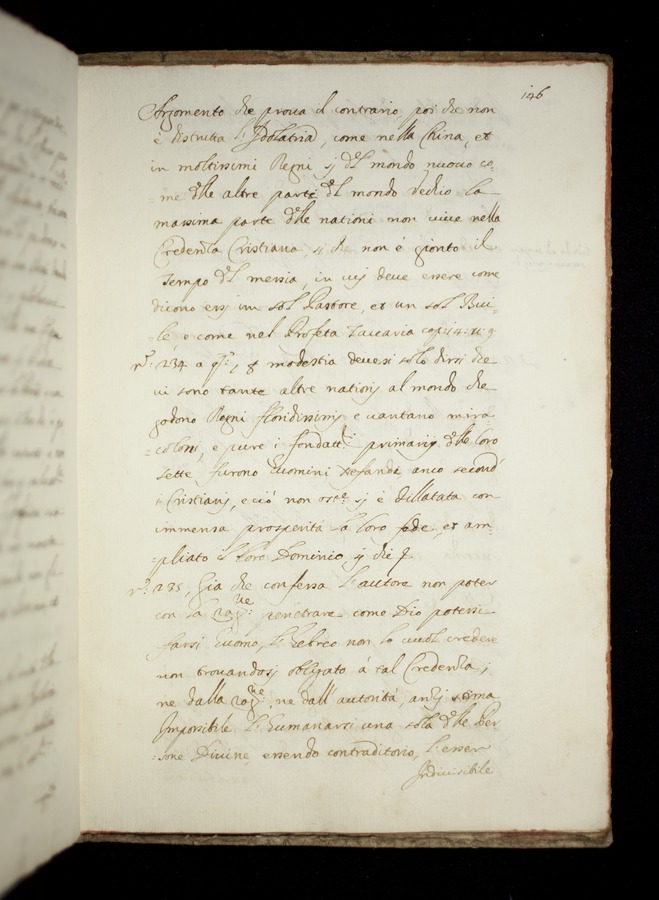 146
Argomento che prova il contrario, poi che non
è distrutta l'Idolatria, come nella China, et
in moltissimi Regni, del mondo nuovo co-
=me delle altre parti del mondo vechio la
massima parte delle nationi non vive nella
Credenza Cristiana, si che non è gionto il
tempo del messia, in cui deve essere come
dicono essi un sol Pastore, et un sol Ovi-
=le, e come nel Profeta Zaccaria cap: 14: v: 9
nº: 234 a modestia devesi solo dirsi che
vi sono tante altre nationi al mondo che
godono Regni floridissimi e vantano mira-
=coloni, e pure i fondatt.i primarij delle loro
sette furono Huomini nefandi anco secondo
i Cristiani, e ciò non ost.e si è dillatata con
immensa prosperità la loro fede, et am-
=pliato il loro Dominio,
nº: 235, Già che confessa l'autore non poter
con la rag.ne penetrare come Dio potersi
farsi huomo, l'Hebreo non lo vuol credere
non trovandosi obligato à tal Credenza;
ne dalla rag.ne, ne dall'autorità, anzi stima
Impossibile l'Humanarsi una sola delle Per
=sone Divine, essendo contraditorio, l'esser
Indivisibile